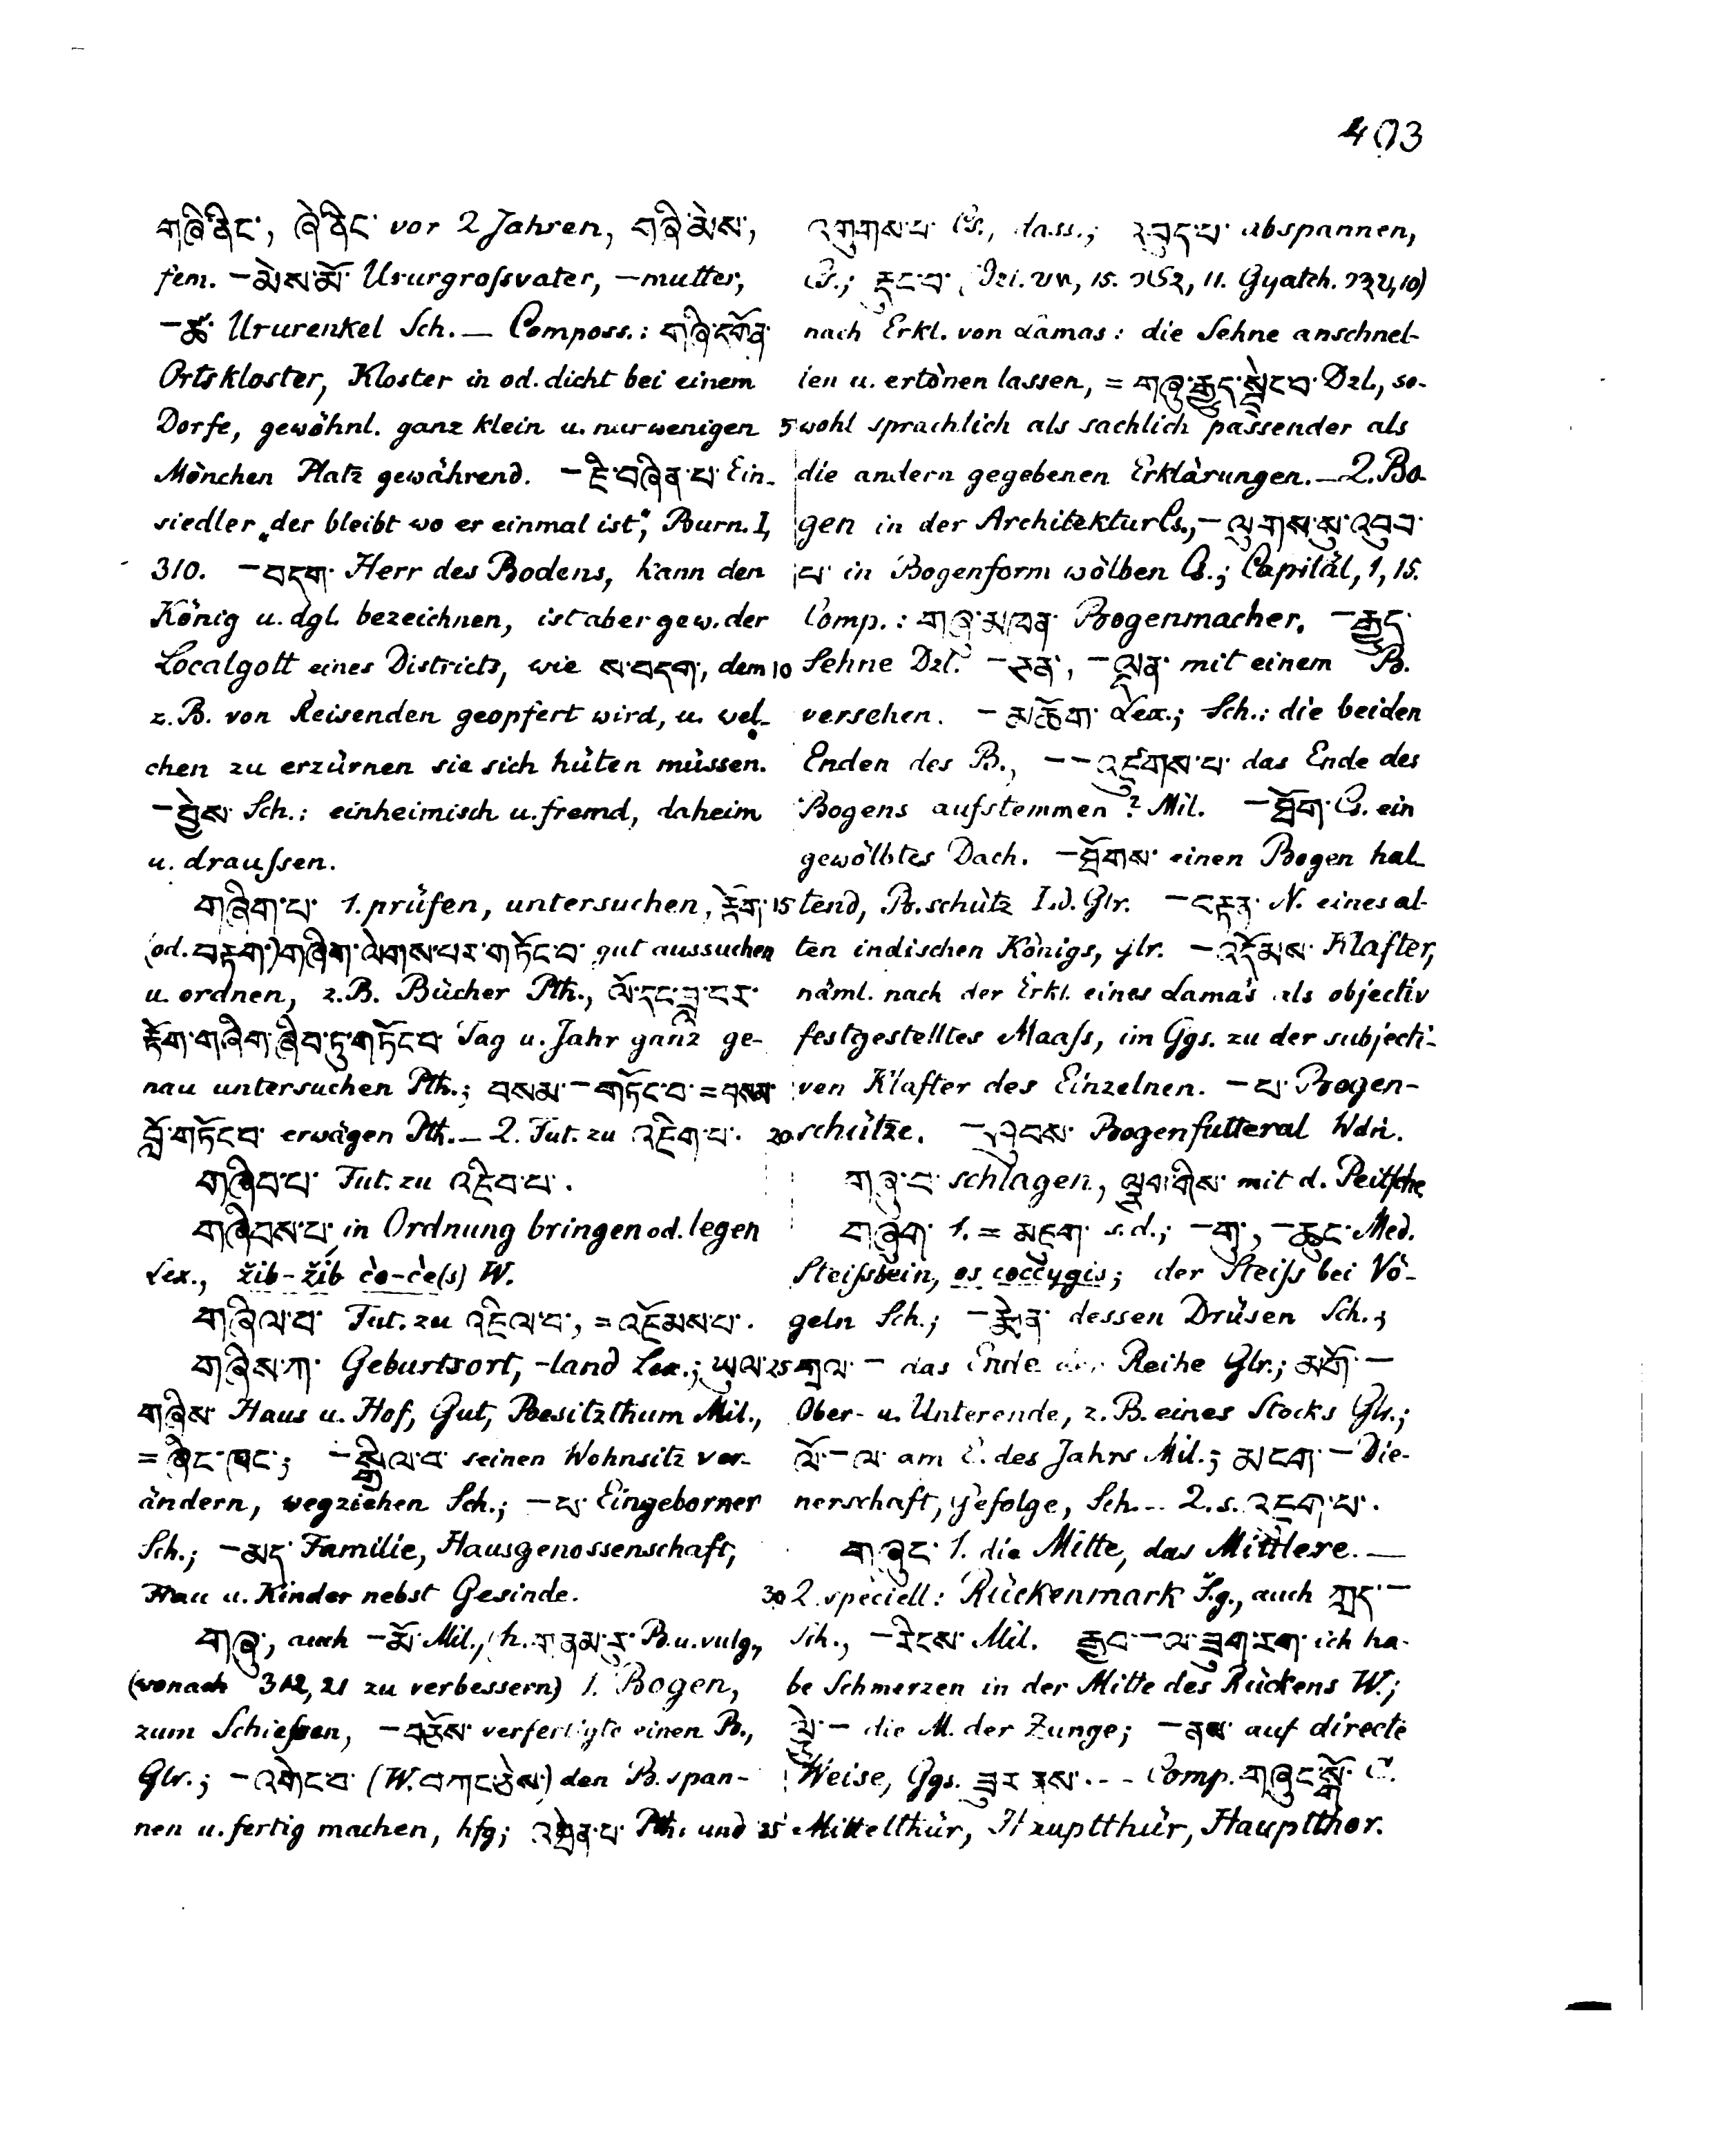 403
གཞི་ནིང་, ཞེ་ནིང་ vor 2 Jahren, གཞི་མེས་,
fem. –མེས་མོ་ Ururgrofsvater, –mutter;
–ཚ་ Ururenkel Sch. — Composs.: གཞི་དགོན་
Ortskloster, Kloster in od. dicht bei einem
Dorfe, gewöhnl. ganz klein u. nur wenigen
Mönchen Platz gewährend. –ཇི་བཞིན་པ་ Ein-
siedler „der bleibt wo er einmal ist", Burn. I,
310. –བདག་ Herr des Bodens, kann den
König u. dgl. bezeichnen, ist aber gew. der
Localgott eines Districts, wie ས་བདག་, dem
z. B. von Reisenden geopfert wird, u. wel-
chen zu erzürnen sie sich hüten müssen.
–བྱེས་ Sch.: einheimisch u. fremd, daheim
u. draufsen.
གཞིག་པ་ 1. prüfen, untersuchen, རྟོག་
(od. བརྟག་) གཞིག་ལེགས་པར་གཏོང་བ་ gut aussuchen
u. ordnen, z. B. Bücher Pth., ལོ་དང་ཟླ་བར་
རྟོག་གཞིག་ཞིབ་ཏུ་གཏོང་བ་ Tag u. Jahr ganz ge-
nau untersuchen Pth.; བསམ་–གཏོང་བ་ = བསམ་
བློ་གཏོང་བ་ erwägen Pth. — 2. Fut. zu འཇིག་པ་.
གཞིབ་པ་ Fut. zu འཇིབ་པ་.
གཞིབས་པ་ in Ordnung bringen od. legen
Lex., žib-žib čo-če(s) W.
གཞིལ་བ་ Fut. zu འཇིལ་བ་, = འཇོམས་པ་.
གཞིས་ཀ་ Geburtsort, -land Lex.; ཡུལ་
གཞིས་ Haus u. Hof, Gut, Besitzthum Mil.,
= ཞིང་ཁང་; –སྒྲིལ་བ་ seinen Wohnsitz ver-
ändern, wegziehen Sch.; –པ་ Eingeborner
Sch.; –མད་ Familie, Hausgenossenschaft,
Frau u. Kinder nebst Gesinde.
གཞུ་, auch –མོ་ Mil., h. གནམ་རུ་ B. u. vulg.,
(wonach 312, 21 zu verbessern) 1. Bogen,
zum Schiefsen, –བཅོས་ verfertigte einen B.,
Glr.; –འགེང་བ་ (W. བཀང་ཅེས་) den B. span-
nen u. fertig machen, hfg; Pth. und
འགུགས་པ་ Cs., dass.; འབུད་པ་ abspannen,
Cs.; རྡུང་བ་ Dzl. 11. Gyatch.
nach Erkl. von Lamas: die Sehne anschnel-
len u. ertönen lassen, = གཞུ་རྒྱུད་སྒྲེང་བ་ Dzl., so-
5 wohl sprachlich als sachlich passender als
die andern gegebenen Erklärungen. — 2. Bo-
gen in der Architektur Cs., –ལུགས་སུ་འབུབ་
པ་ in Bogenform wölben Cs.; Capitäl, 1, 15.
Comp.: གཞུ་མཁན་ Bogenmacher. –རྒྱུད་
10 Sehne Dzl. –ཅན་, –ལྡན་ mit einem B.
versehen. –མཆོག་ Lex.; Sch.: die beiden
Enden des B., – –འཛུགས་པ་ das Ende des
Bogens aufstemmen? Mil. –ཐོག་ Cs. ein
gewölbtes Dach. –ཐོགས་ einen Bogen hal-
15 tend, B.schütz I.d. Glr. –བརྟན་ N. eines al-
ten indischen Königs, Glr. –འདོམས་ Klafter,
näml. nach der Erkl. eines Lama's als objectiv
festgestelltes Maafs, im Ggs. zu der subjecti-
ven Klafter des Einzelnen. –པ་ Bogen-
20 schütze. –ཤུབས་ Bogenfutteral Wdn.
གཞུ་བ་ schlagen, ལྕག་གིས་ mit d. Peitsche
གཞུག་ 1. = མཇུག་ s. d.; –གུ་, –ཆུང་ Med.
Steifsbein, os coccygis; der Steifs bei Vö-
geln Sch.; –རྨེན་ dessen Drüsen Sch.;
25 གྲལ་– das Ende der Reihe Glr.; མགོ་–
Ober- u. Unterende, z. B. eines Stocks Glr.;
ལོ་–ལ་ am E. des Jahrs Mil.; མངག་– Die-
nerschaft, Gefolge, Sch. – 2. s. འཇུག་པ་.
གཞུང་ 1. die Mitte, das Mittlere. —
30 2. speciell: Rückenmark S.g., auch ཀླད་–
Sch., –རིངས་ Mil. རྒྱབ་–ལ་ཟུག་རག་ ich ha-
be Schmerzen in der Mitte des Rückens W.;
ལྕེ་– die M. der Zunge; –ནས་ auf directe
Weise, Ggs. ཟུར་ནས་. – – Comp. གཞུང་སྒོ་ C.
35 Mittelthür, Hauptthür, Hauptthor.